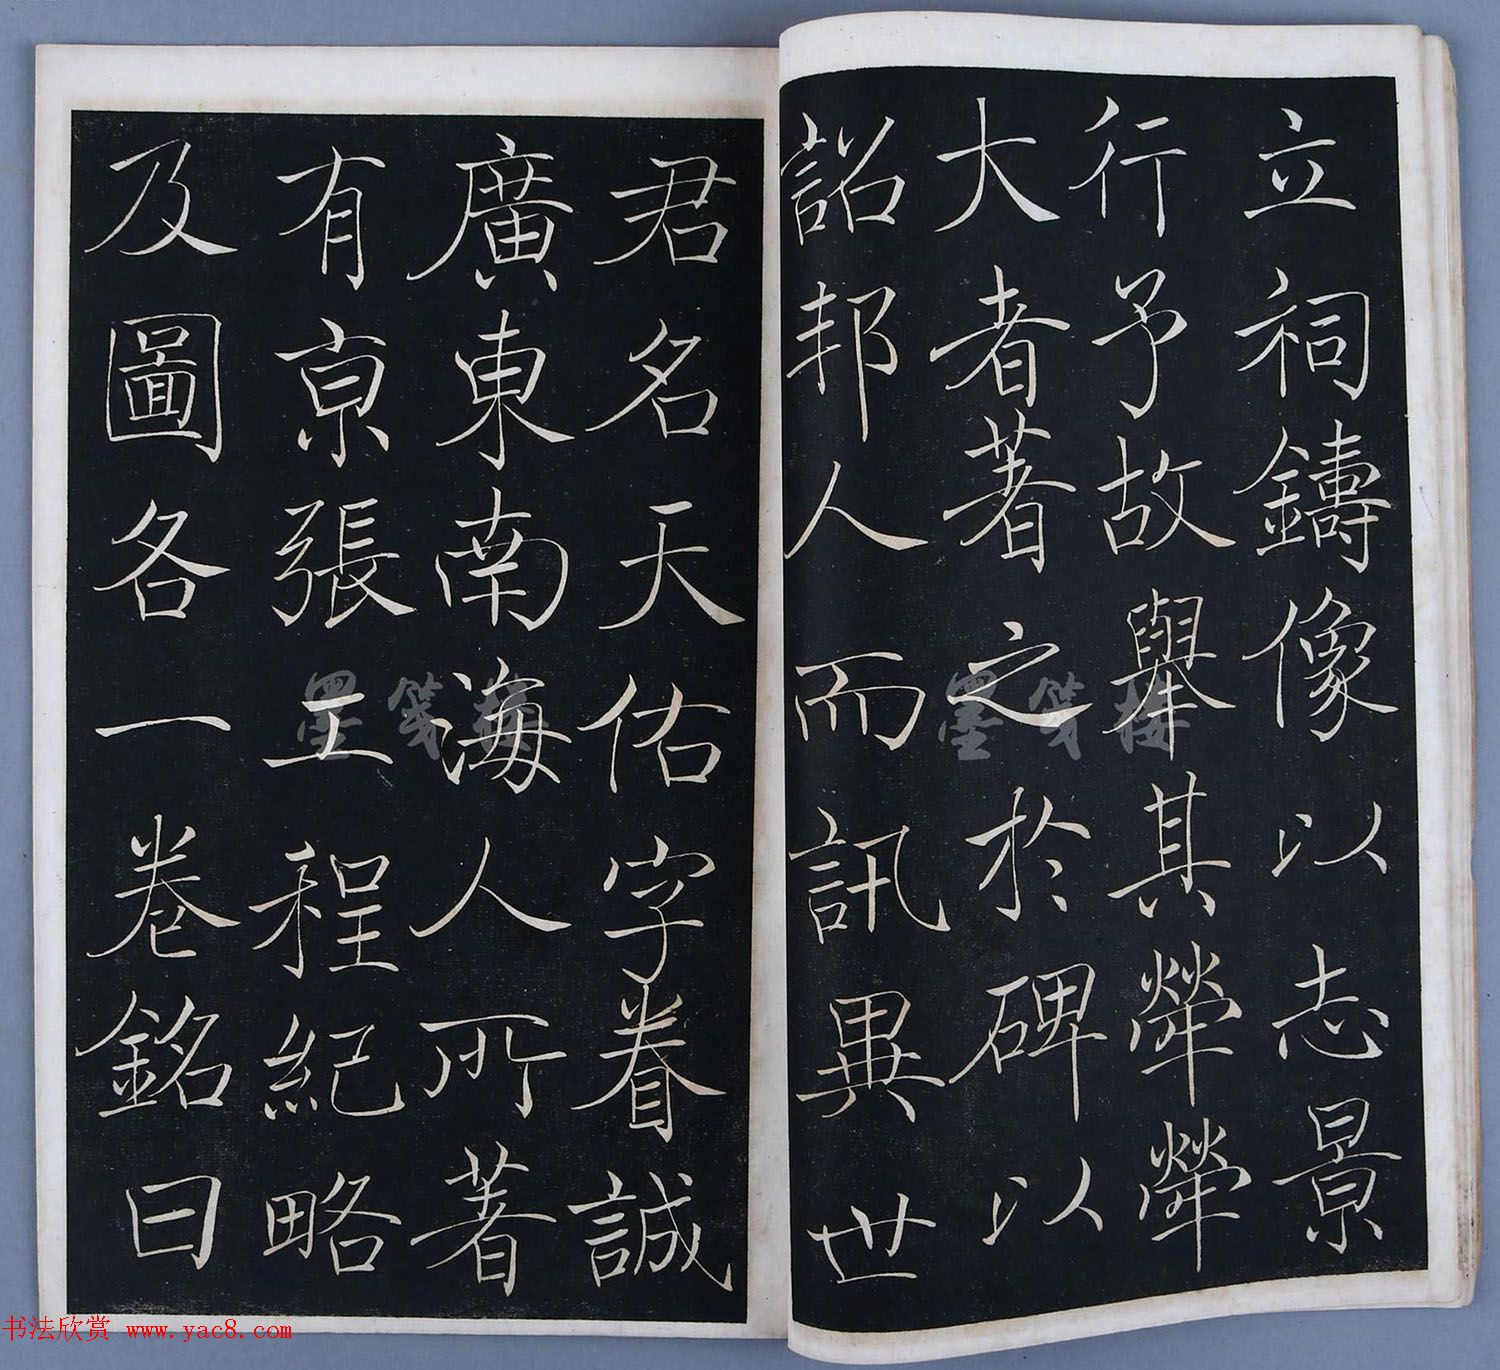 立祠鑄像以志景
行予故舉其犖犖
大者著之於碑以
詔邦人而訊異世
君名天佑字眷誠
廣東南海人所著
有京張工程紀略
及圖各一卷銘曰
墨箋樓
墨箋樓
书法欣赏 www.yac8.com